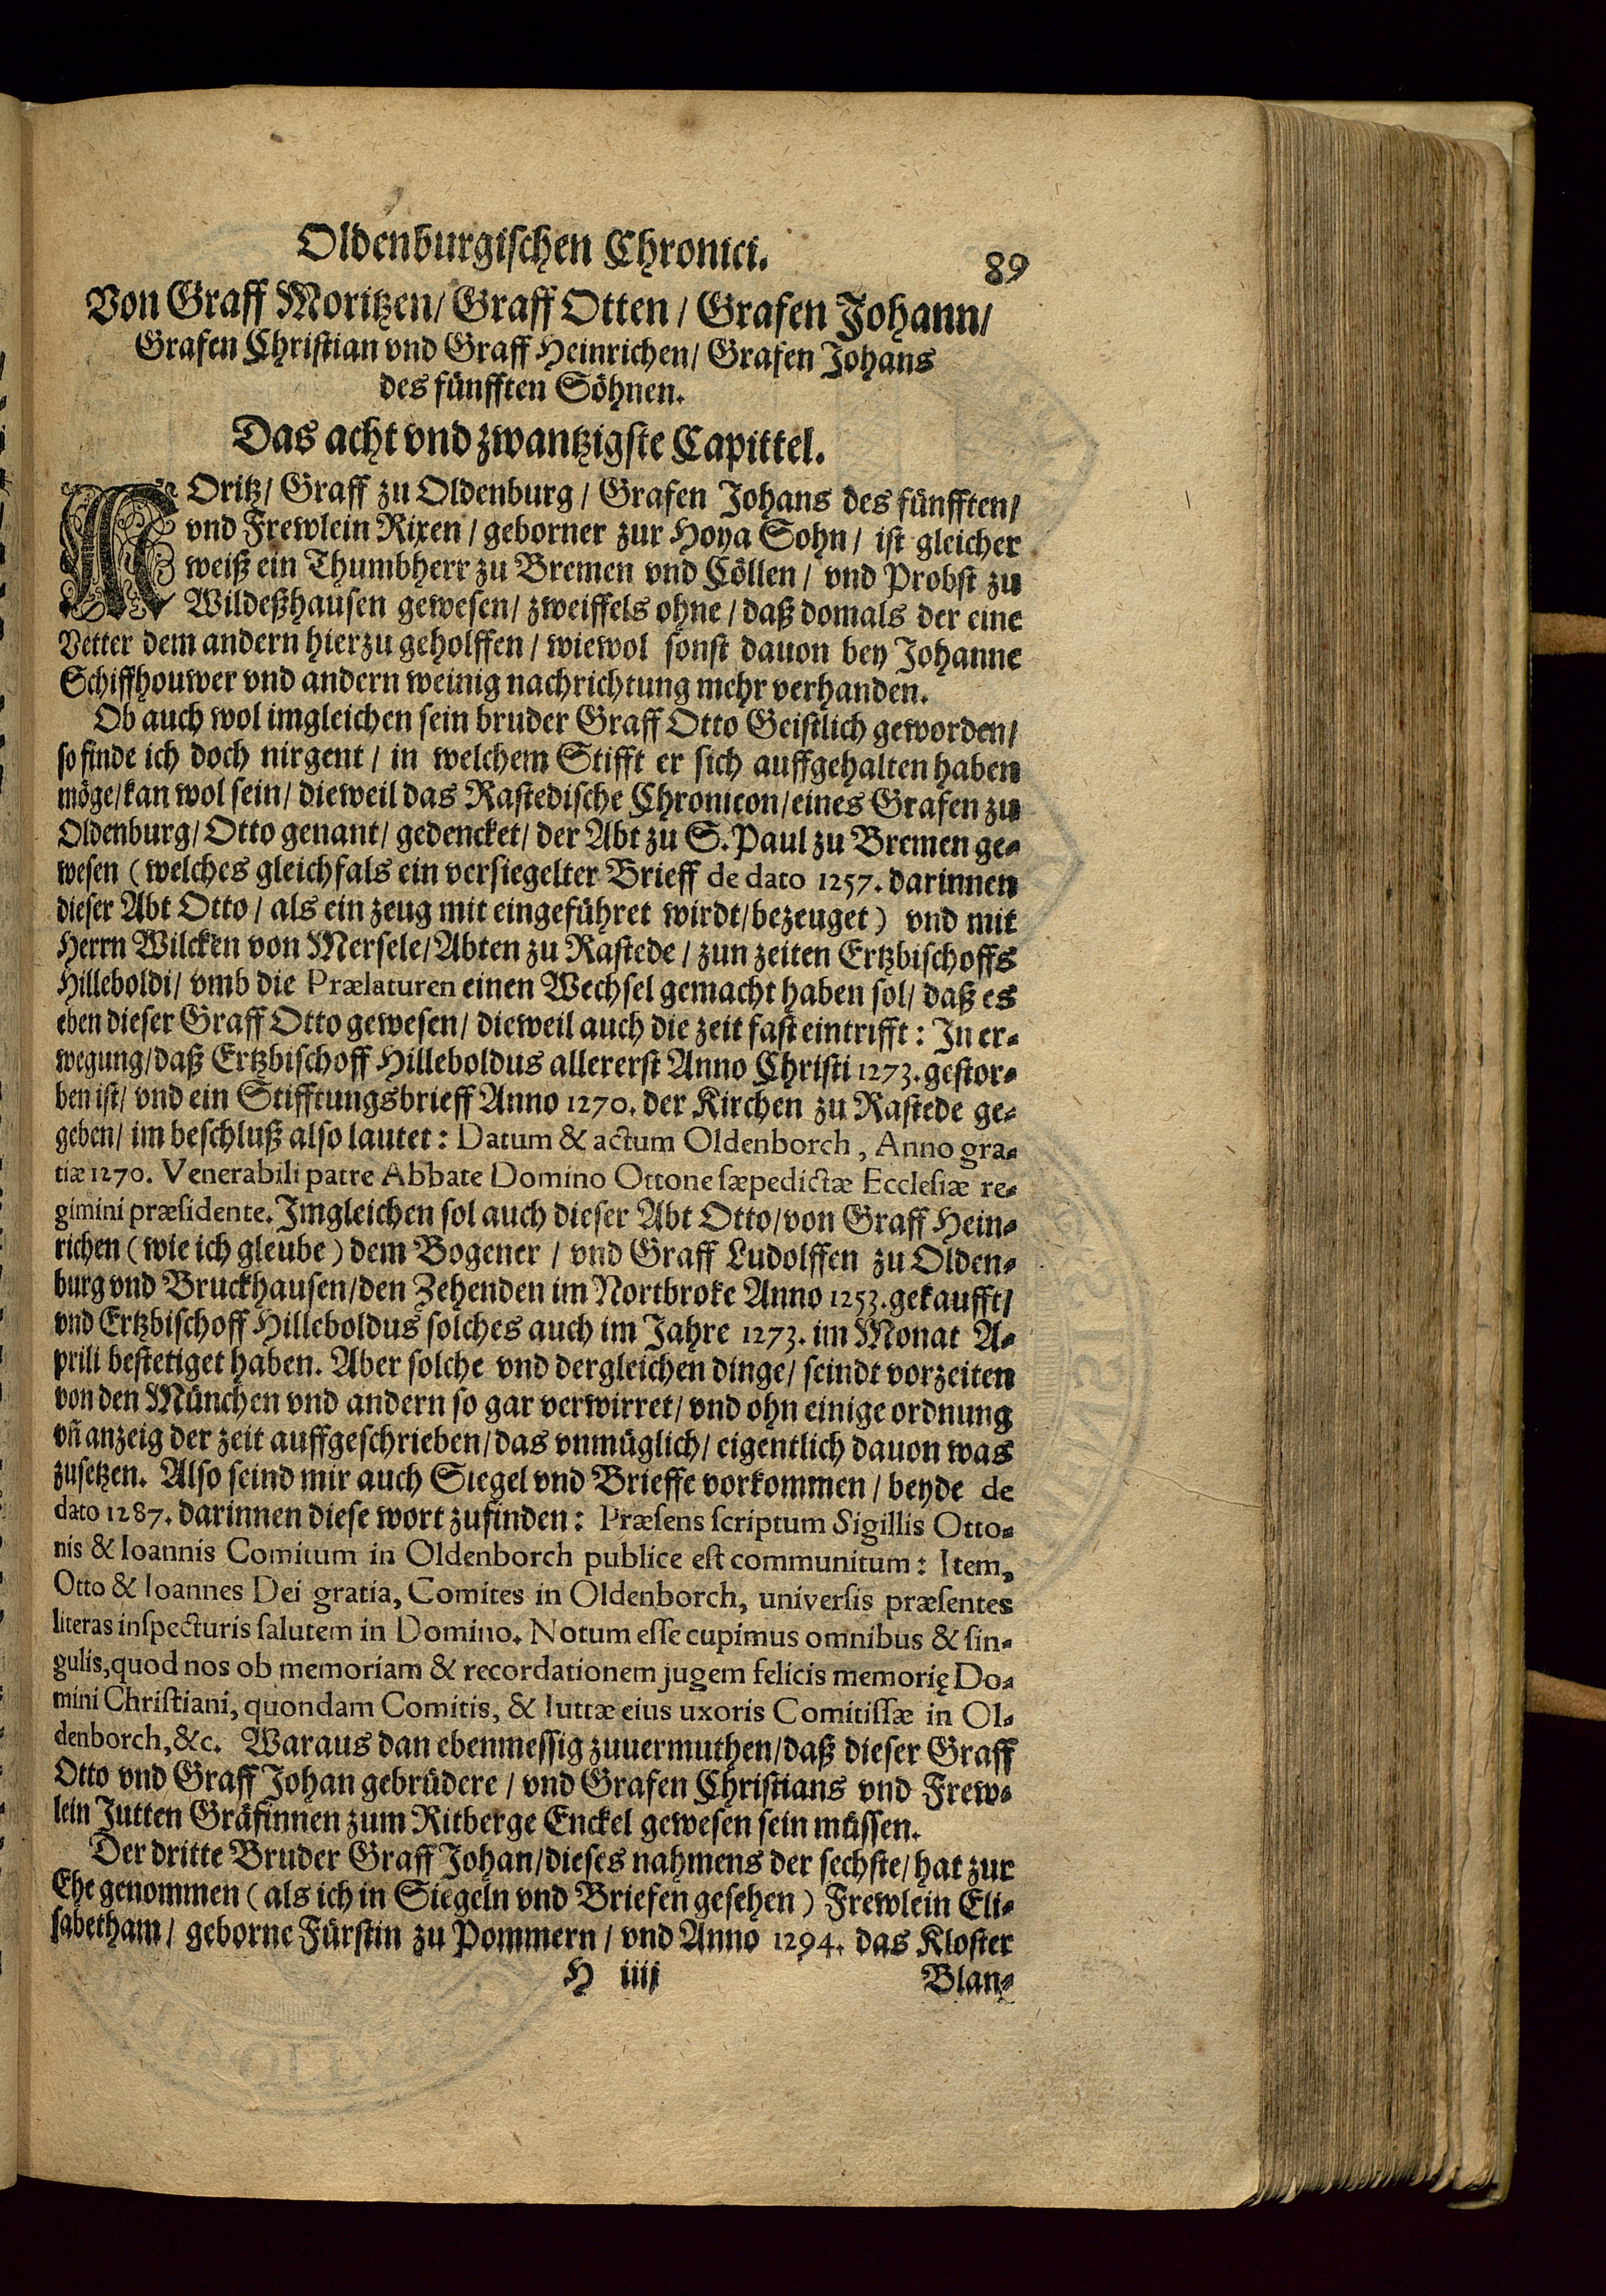 Oldenburgischen Chronici.
89
Von Graff Moritzen/ Graff Otten/ Grafen Johann/
Grafen Christian vnd Graff Heinrichen/ Grafen Johans
des fünfften Söhnen.
Das acht vnd zwantzigste Capittel.
MOritz/ Graff zu Oldenburg/ Grafen Johans des fünfften/
vnd Frewlein Rixen/ geborner zur Hoya Sohn/ ist gleicher
weiß ein Thumbherr zu Bremen vnd Cöllen/ vnd Probst zu
Wildeßhausen gewesen/ zweiffels ohne/ daß domals der eine
Vetter dem andern hierzu geholffen/ wiewol sonst dauon bey Johanne
Schiffhouwer vnd andern weinig nachrichtung mehr verhanden.
Ob auch wol imgleichen sein bruder Graff Otto Geistlich geworden/
so finde ich doch nirgent/ in welchem Stifft er sich auffgehalten haben
möge/ kan wol sein/ dieweil das Rastedische Chronicon/ eines Grafen zu
Oldenburg/ Otto genant/ gedencket/ der Abt zu S. Paul zu Bremen ge-
wesen (welches gleichfals ein versiegelter Brieff de dato 1257. darinnen
dieser Abt Otto/ als ein zeug mit eingeführet wirdt/ bezeuget) vnd mit
Herrn Wilcken von Mersele/ Abten zu Rastede/ zun zeiten Ertzbischoffs
Hilleboldi/ vmb die Prælaturen einen Wechsel gemacht haben sol/ daß es
eben dieser Graff Otto gewesen/ dieweil auch die zeit fast eintrifft: In er-
wegung/ daß Ertzbischoff Hilleboldus allererst Anno Christi 1273. gestor-
ben ist/ vnd ein Stifftungsbrieff Anno 1270. der Kirchen zu Rastede ge-
geben/ im beschluß also lautet: Datum & actum Oldenborch, Anno gra-
tiæ 1270. Venerabili patre Abbate Domino Ottone sæpedictæ Ecclesiæ re-
gimini præsidente. Imgleichen sol auch dieser Abt Otto/ von Graff Hein-
richen (wie ich gleube) dem Bogener/ vnd Graff Ludolffen zu Olden-
burg vnd Bruckhausen/ den Zehenden im Nortbroke Anno 1253. gekaufft/
vnd Ertzbischoff Hilleboldus solches auch im Jahre 1273. im Monat A-
prili bestetiget haben. Aber solche vnd dergleichen dinge/ seindt vorzeiten
von den München vnd andern so gar verwirret/ vnd ohn einige ordnung
vñ anzeig der zeit auffgeschrieben/ das vnmüglich/ eigentlich dauon was
zusetzen. Also seind mir auch Siegel vnd Brieffe vorkommen/ beyde de
dato 1287. darinnen diese wort zufinden: Præsens scriptum Sigillis Otto-
nis & Ioannis Comitum in Oldenborch publice est communitum: Item,
Otto & Ioannes Dei gratia, Comites in Oldenborch, universis præsentes
literas inspecturis salutem in Domino. Notum esse cupimus omnibus & sin-
gulis, quod nos ob memoriam & recordationem jugem felicis memorię Do-
mini Christiani, quondam Comitis, & Iuttæ eius uxoris Comitissæ in Ol-
denborch, &c. Waraus dan ebenmessig zuuermuthen/ daß dieser Graff
Otto vnd Graff Johan gebrüdere/ vnd Grafen Christians vnd Frew-
lein Jutten Gräfinnen zum Ritberge Enckel gewesen sein müssen.
Der dritte Bruder Graff Johan/ dieses nahmens der sechste/ hat zur
Ehe genommen (als ich in Siegeln vnd Briefen gesehen) Frewlein Eli-
sabetham/ geborne Fürstin zu Pommern/ vnd Anno 1294. das Kloster
H iiij
Blan-